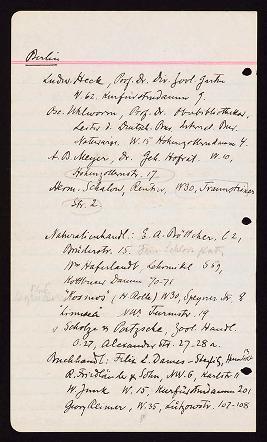 Berlin
Ludw. Heck, Prof. Dr. Dir. Zool. Garten
W. 62. Kurfürstendamm 9.
Osc. Uhlworm, Prof. Dr. Oberbibliothekar,
Leiter d. Deutsch. Bur. Internat. Bur.
Naturwiss. W. 15 Hohenzollerndamm 4.
A. B. Meyer, Dr. Geh. Hofrat. W. 10,
Hohenzollernstr. 17
Herm. Schalow, Rentier, W30, Traunsteiner
Str. 2
Naturalienhandl: E. A. Böttcher, C 2,
Brüderstr. 15.
Wm Haferlandt, Lohmühl S 59,
Kottbuser Damm 70-71
Kosmos (H. Rolle) W30, Speyrer Str. 8
Linnaea NW. Turmstr. 19
v Scholze & Pötzschke, Zool. Handl.
O. 27, Alexander Str. 27-28 a.
Buchhandl: Felix L. Dames - Steglitz,
R. Friedländer & Sohn, NW. 6, Karlstr. 11
W. Junk W. 15, Kurfürstendamm 201
Georg Reimer, W. 35, Lützowstr. 107-108